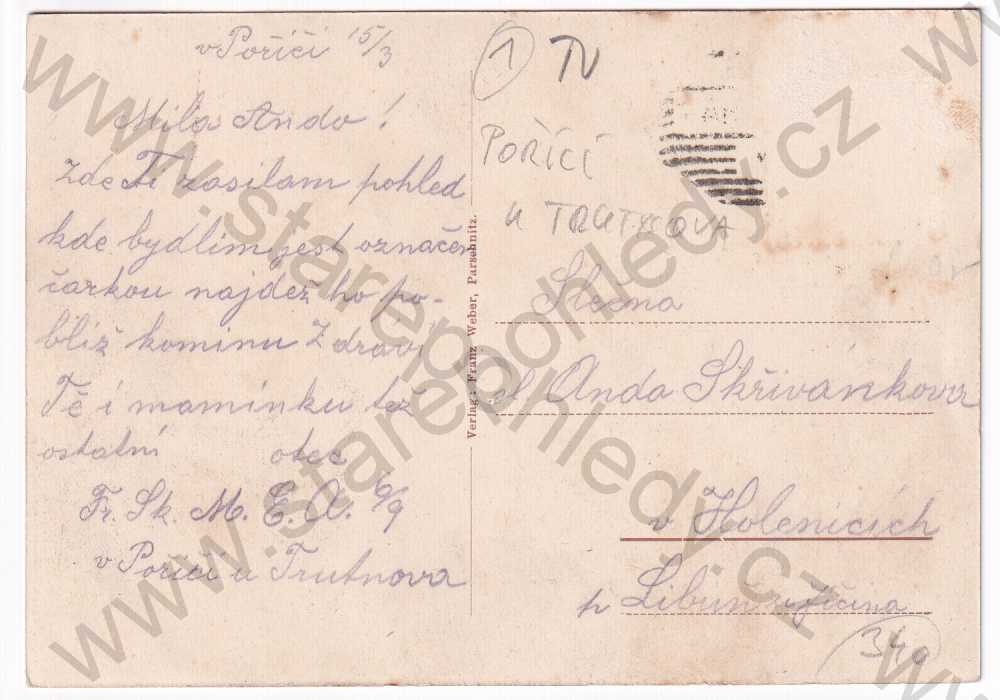 v Poříčí 15/3
Milá Ando!
Zde Ti zasílam pohled
kde bydlim jest označen
čarkou najdeš ho po-
blíž kominu Zdraví
Tě i maminku též
ostatní otec
Fr. Sk. M. E. A. 6/9
v Poříčí u Trutnova
Verlag: Franz Weber, Parschnitz.
1 TV
POŘÍČÍ
U TRUTNOVA
Slečna
Sl. Anda Skřivánkova
v Holenicích
p Libuň u Jičina
340
www.starepohledy.cz
www.starepohledy.cz